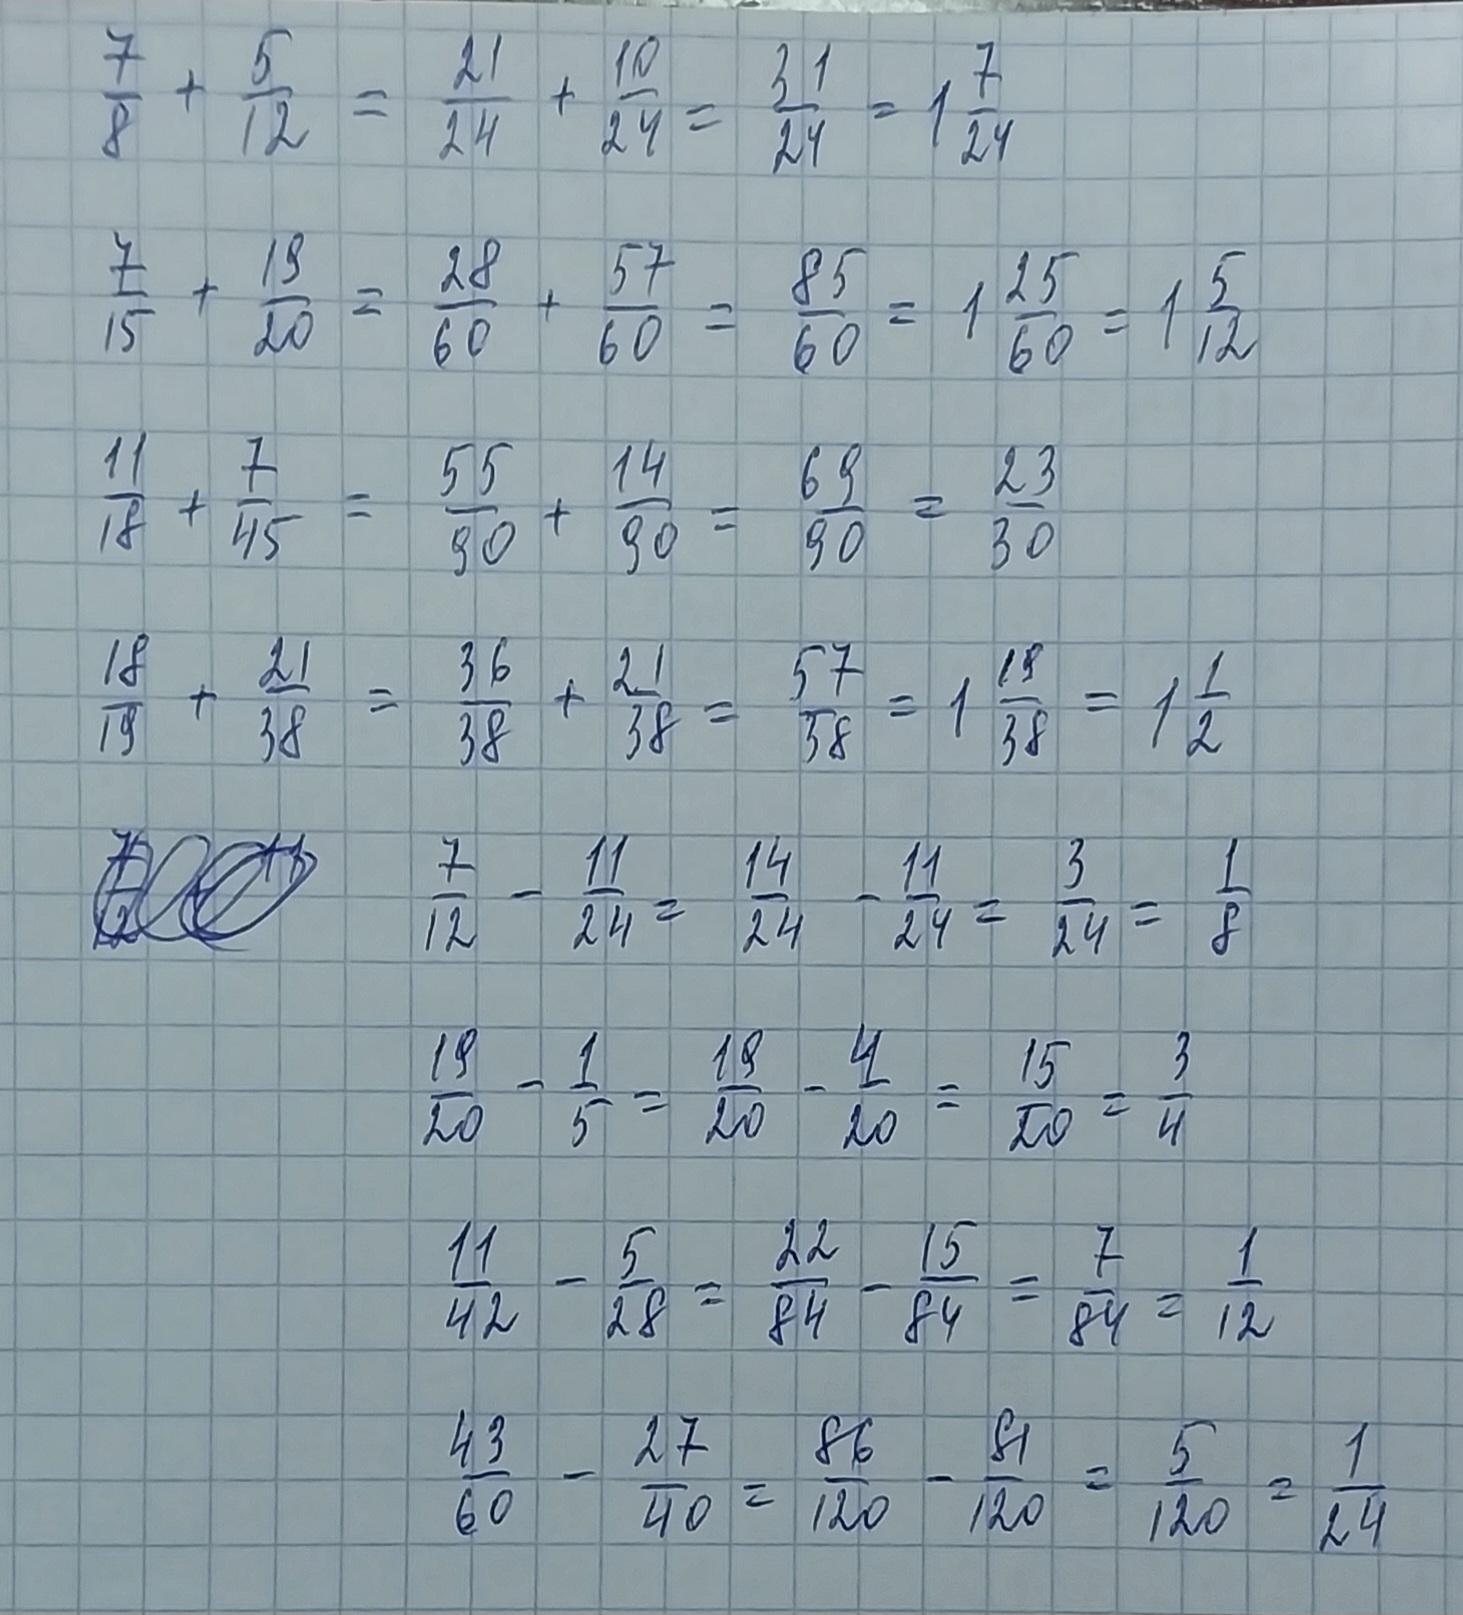 7/8 + 5/12 = 21/24 + 10/24 = 31/24 = 1 7/24
7/15 + 19/20 = 28/60 + 57/60 = 85/60 = 1 25/60 = 1 5/12
11/18 + 7/45 = 55/90 + 14/90 = 69/90 = 23/30
18/19 + 21/38 = 36/38 + 21/38 = 57/38 = 1 19/38 = 1 1/2
7/12 - 11/24 = 14/24 - 11/24 = 3/24 = 1/8
19/20 - 1/5 = 19/20 - 4/20 = 15/20 = 3/4
11/42 - 5/28 = 22/84 - 15/84 = 7/84 = 1/12
43/60 - 27/40 = 86/120 - 81/120 = 5/120 = 1/24